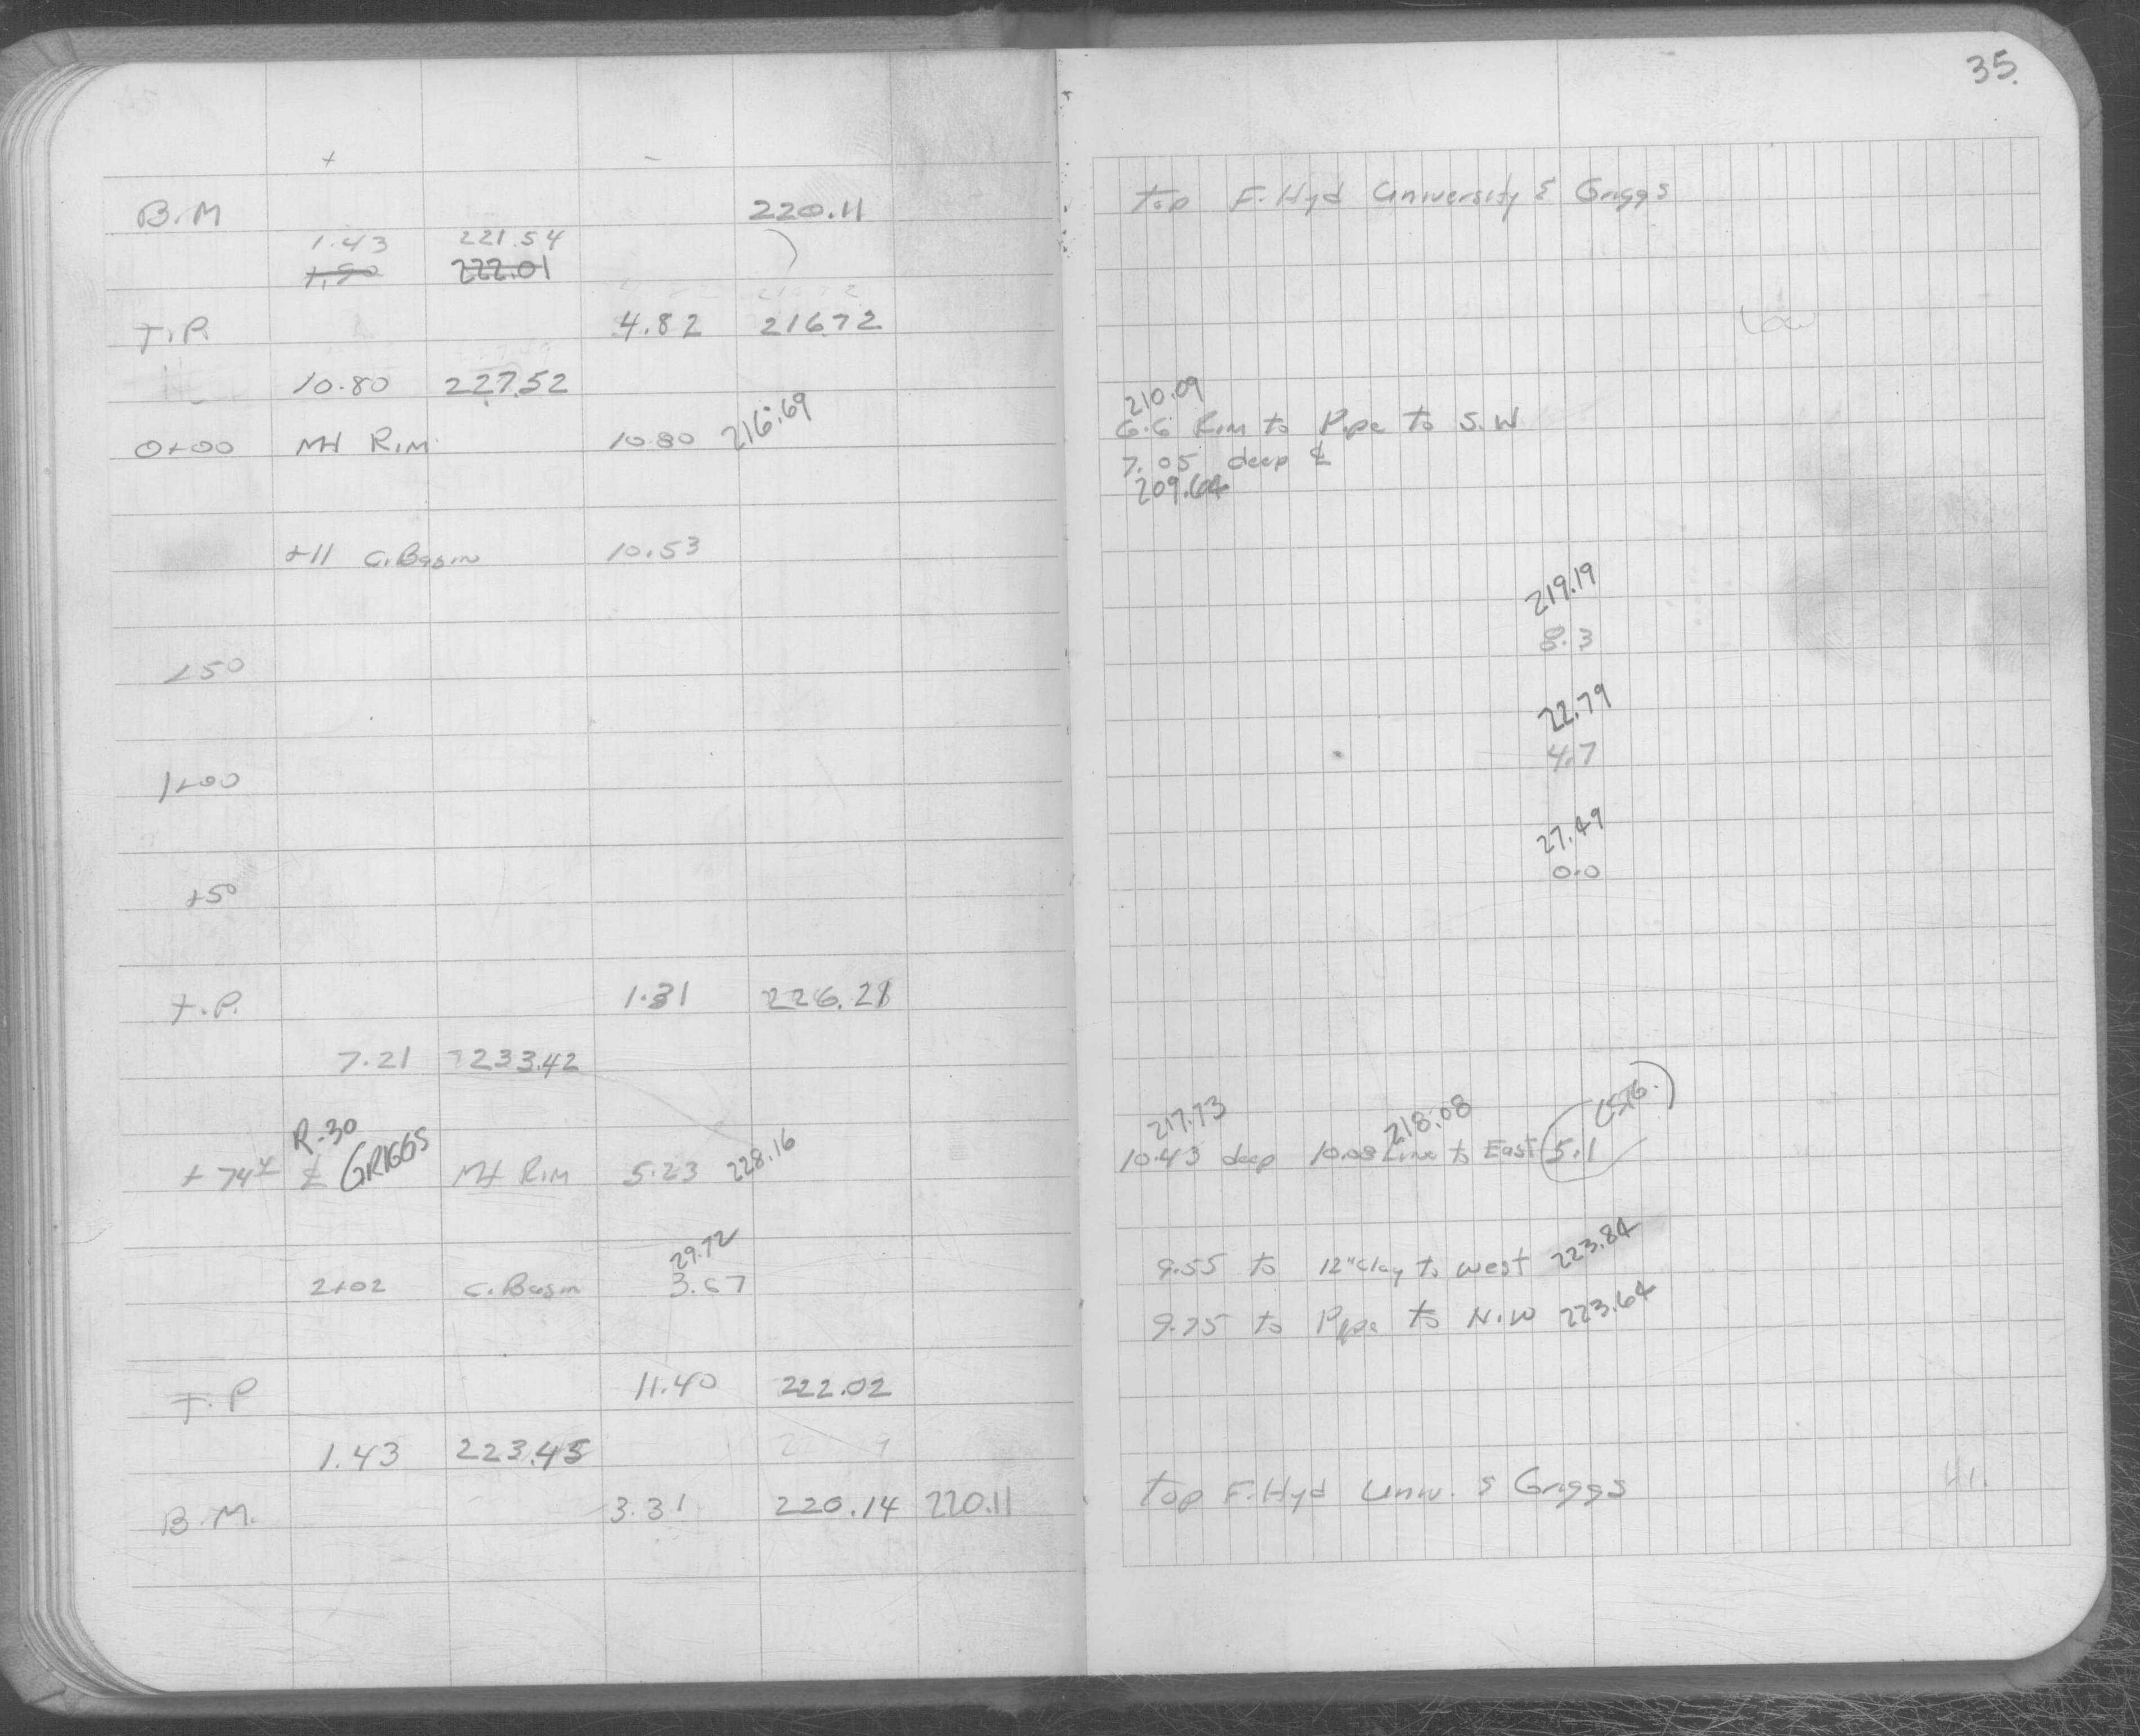 35.
+ -
B.M 220.11 Top F. Hyd University & Griggs
1.43 221.54
1.90 222.01
T.P. 4.82 216.72
10.80 227.52
210.09
0+00 MH RIM 10.80 216.69 6.6 Rim to Pipe to S.W
7.05 deep ℄
209.64
+11 C. Basin 10.53
219.19
+50 8.3
22.79
1+00 4.7
27.49
+50 0.0
T.P. 1.31 226.21
7.21 233.42
R-30 217.73 218.08 (516.)
+74 ℄ GRIGGS MH RIM 5.23 228.16 10.43 deep 10.08 Line to East 5.1
29.72
2+02 C. Basin 3.67 9.55 to 12" clay to west 223.84
9.75 to Pipe to N.W 223.64
T.P 11.40 222.02
1.43 223.45
B.M. 3.31 220.14 220.11 Top F. Hyd Univ. & Griggs